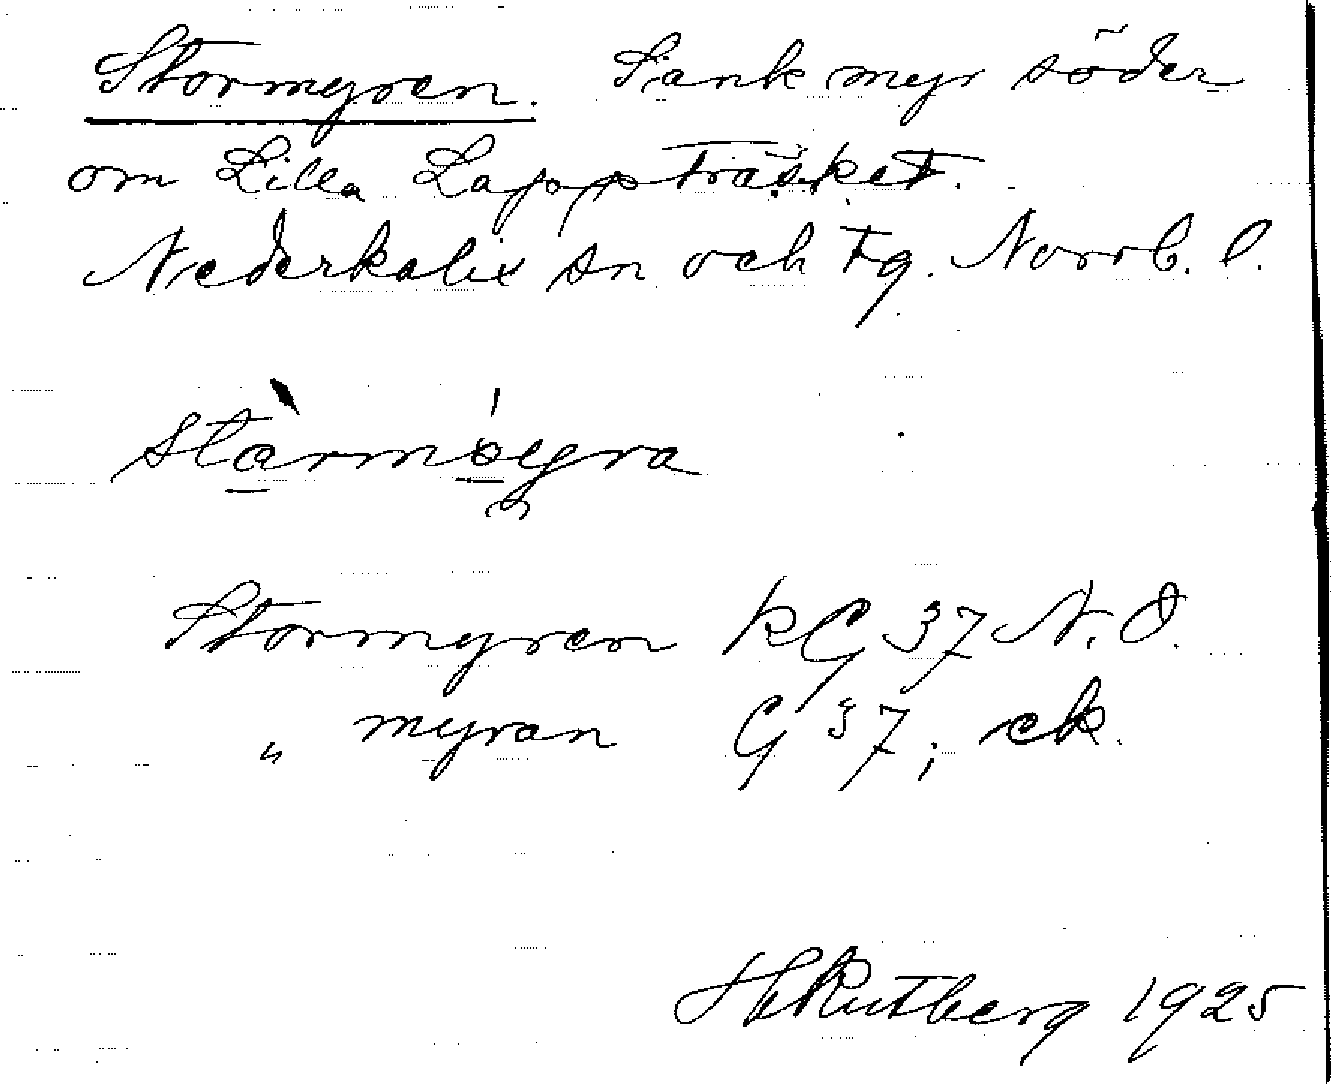 Stormyren. Sank myr söder
om Lilla Lappträsket.
Nederkalix sn och tg. Norrb. l.
Stormyren KG 37 N.O.
„ myran G 37, ek.
H Rutberg 1925